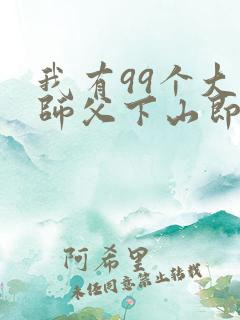 我有99个大
師父下山即
阿希里
未经同意禁止转载